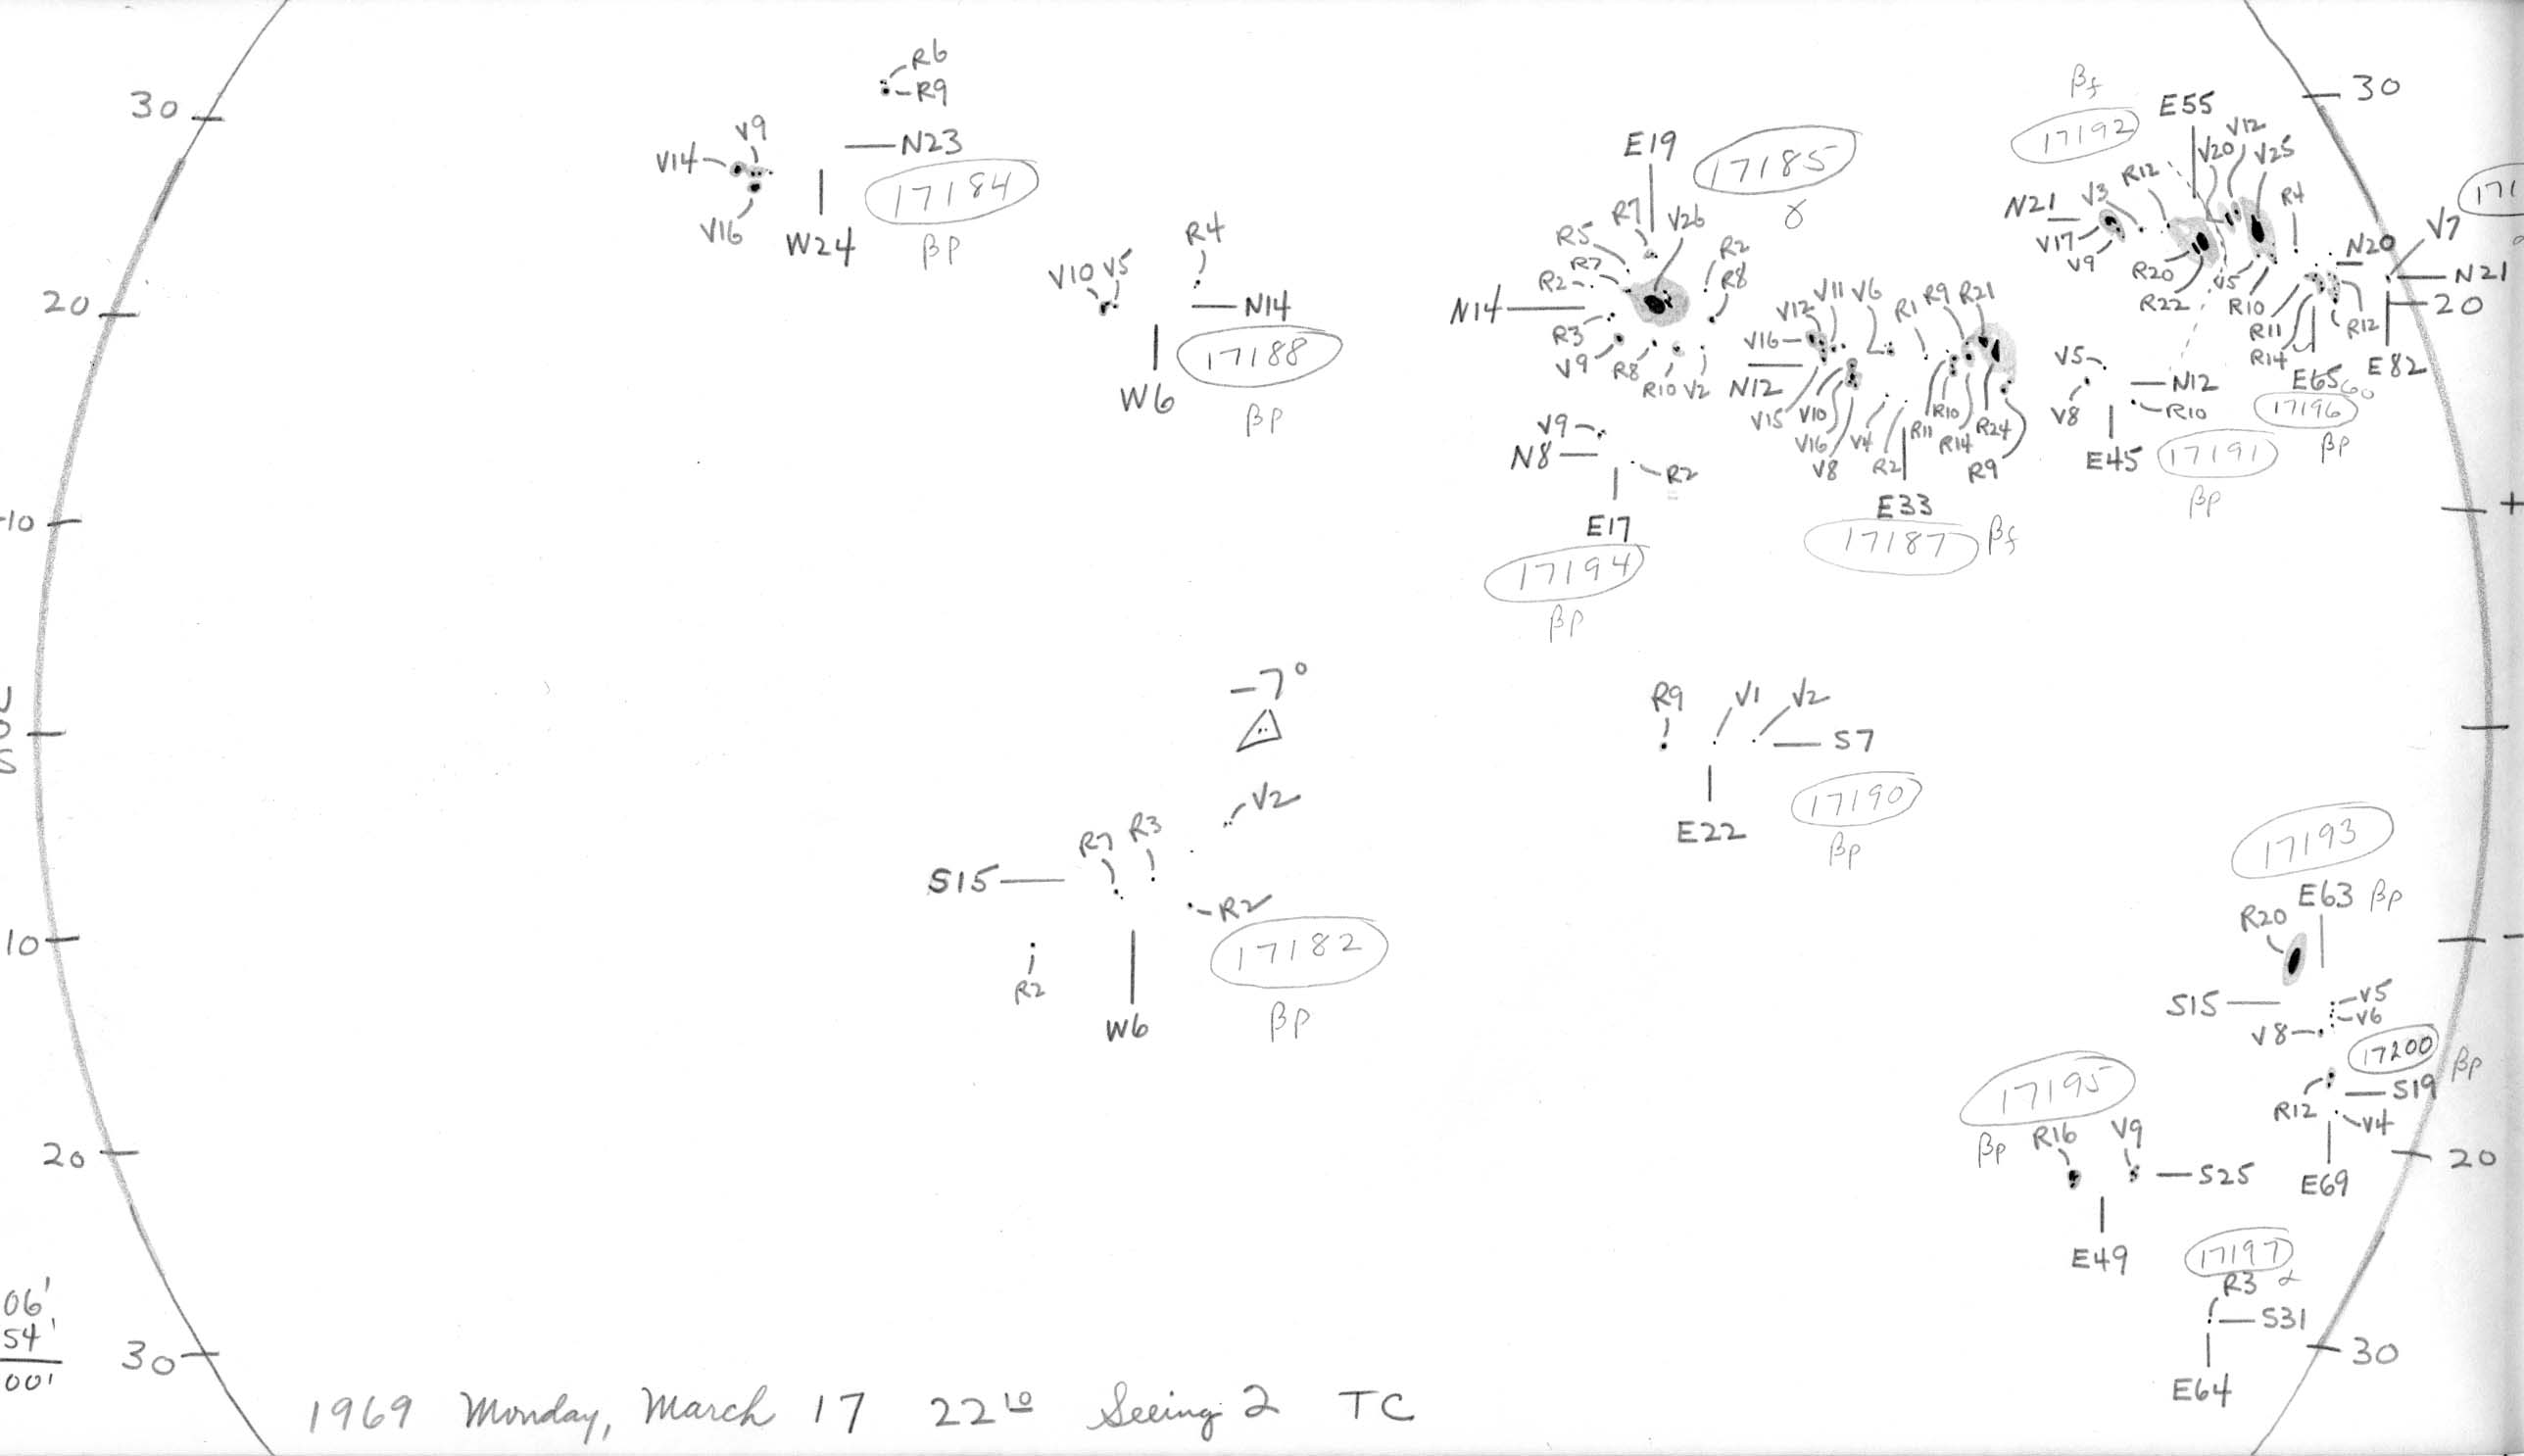 30
20
10
10
20
30
06'
54'
00'
R6
R9
N23
V9
V14
V16
W24
17184
βp
R4
V10 V5
N14
W6
17188
βp
E19
17185
γ
R7
V26
R5
R7
R2
R2
R8
N14
R3
V9
R8
R10 V2
V9
N8
R2
E17
17194
βp
V12
V11 V6
R1 R9 R21
V16
N12
V15 V10
V16
V8
V4
R2
R11
R10
R14
R24
R9
E33
17187
βf
βf
17192
E55
V12
V20
V25
R12
R4
N21
V3
V17
V9
R20
R22
V5
R10
R11
R14
V5
R12
N20
V7
N21
E82
E65 60
17196
βp
V5
V8
N12
R10
E45
17191
βp
171
30
20
+
-7°
V2
R7 R3
S15
R2
R2
W6
17182
βp
R9 V1 V2
S7
E22
17190
βp
17193
E63 βp
R20
S15
V5
V6
V8
17200
βp
R12
S19
V4
E69
17195
βp R16 V9
S25
E49
17197
R3 α
S31
E64
-
20
30
1969 Monday, March 17 22¹⁰ Seeing 2 TC